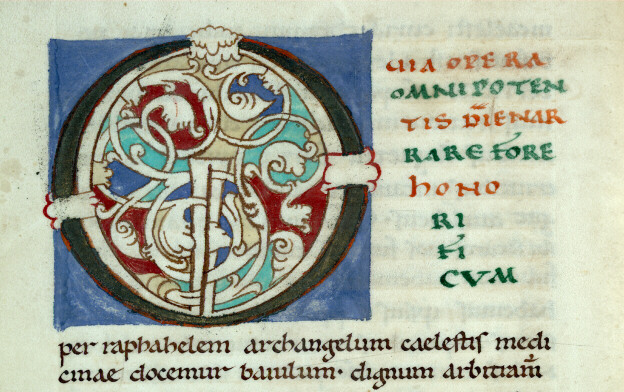 UIA OPERA
OMNIPOTEN
TIS D̄I ENAR
RARE FORE
HONO
RI
FI
CVM
per raphahelem archangelum caelestis medi
cinae docemur baiulum · dignum arbitram̄